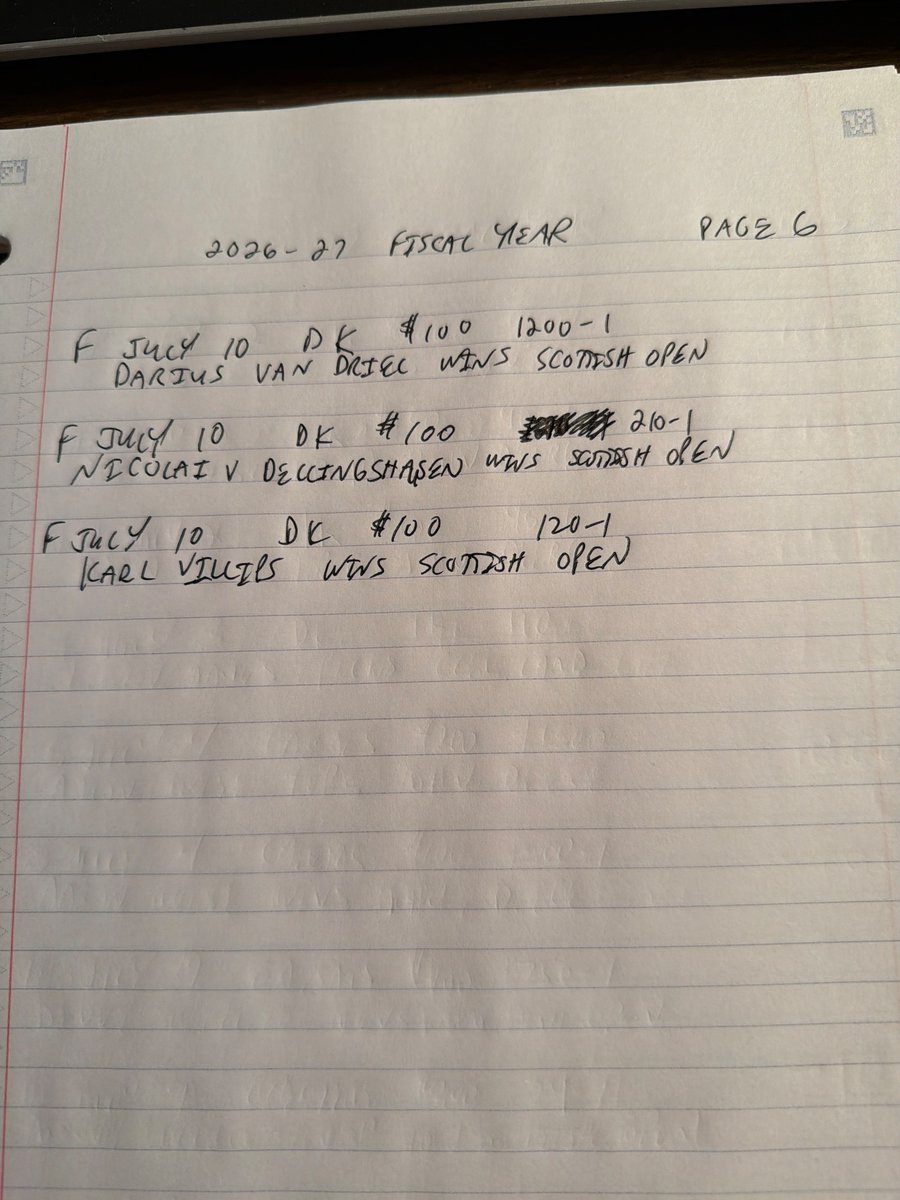 2026-27 FISCAL YEAR PAGE 6
F JULY 10 DK $100 1200-1
DARIUS VAN DRIEL WINS SCOTTISH OPEN
F JULY 10 DK $100 210-1
NICOLAI V DELLINGSHAUSEN WINS SCOTTISH OPEN
F JULY 10 DK $100 120-1
KARL VILLIPS WINS SCOTTISH OPEN